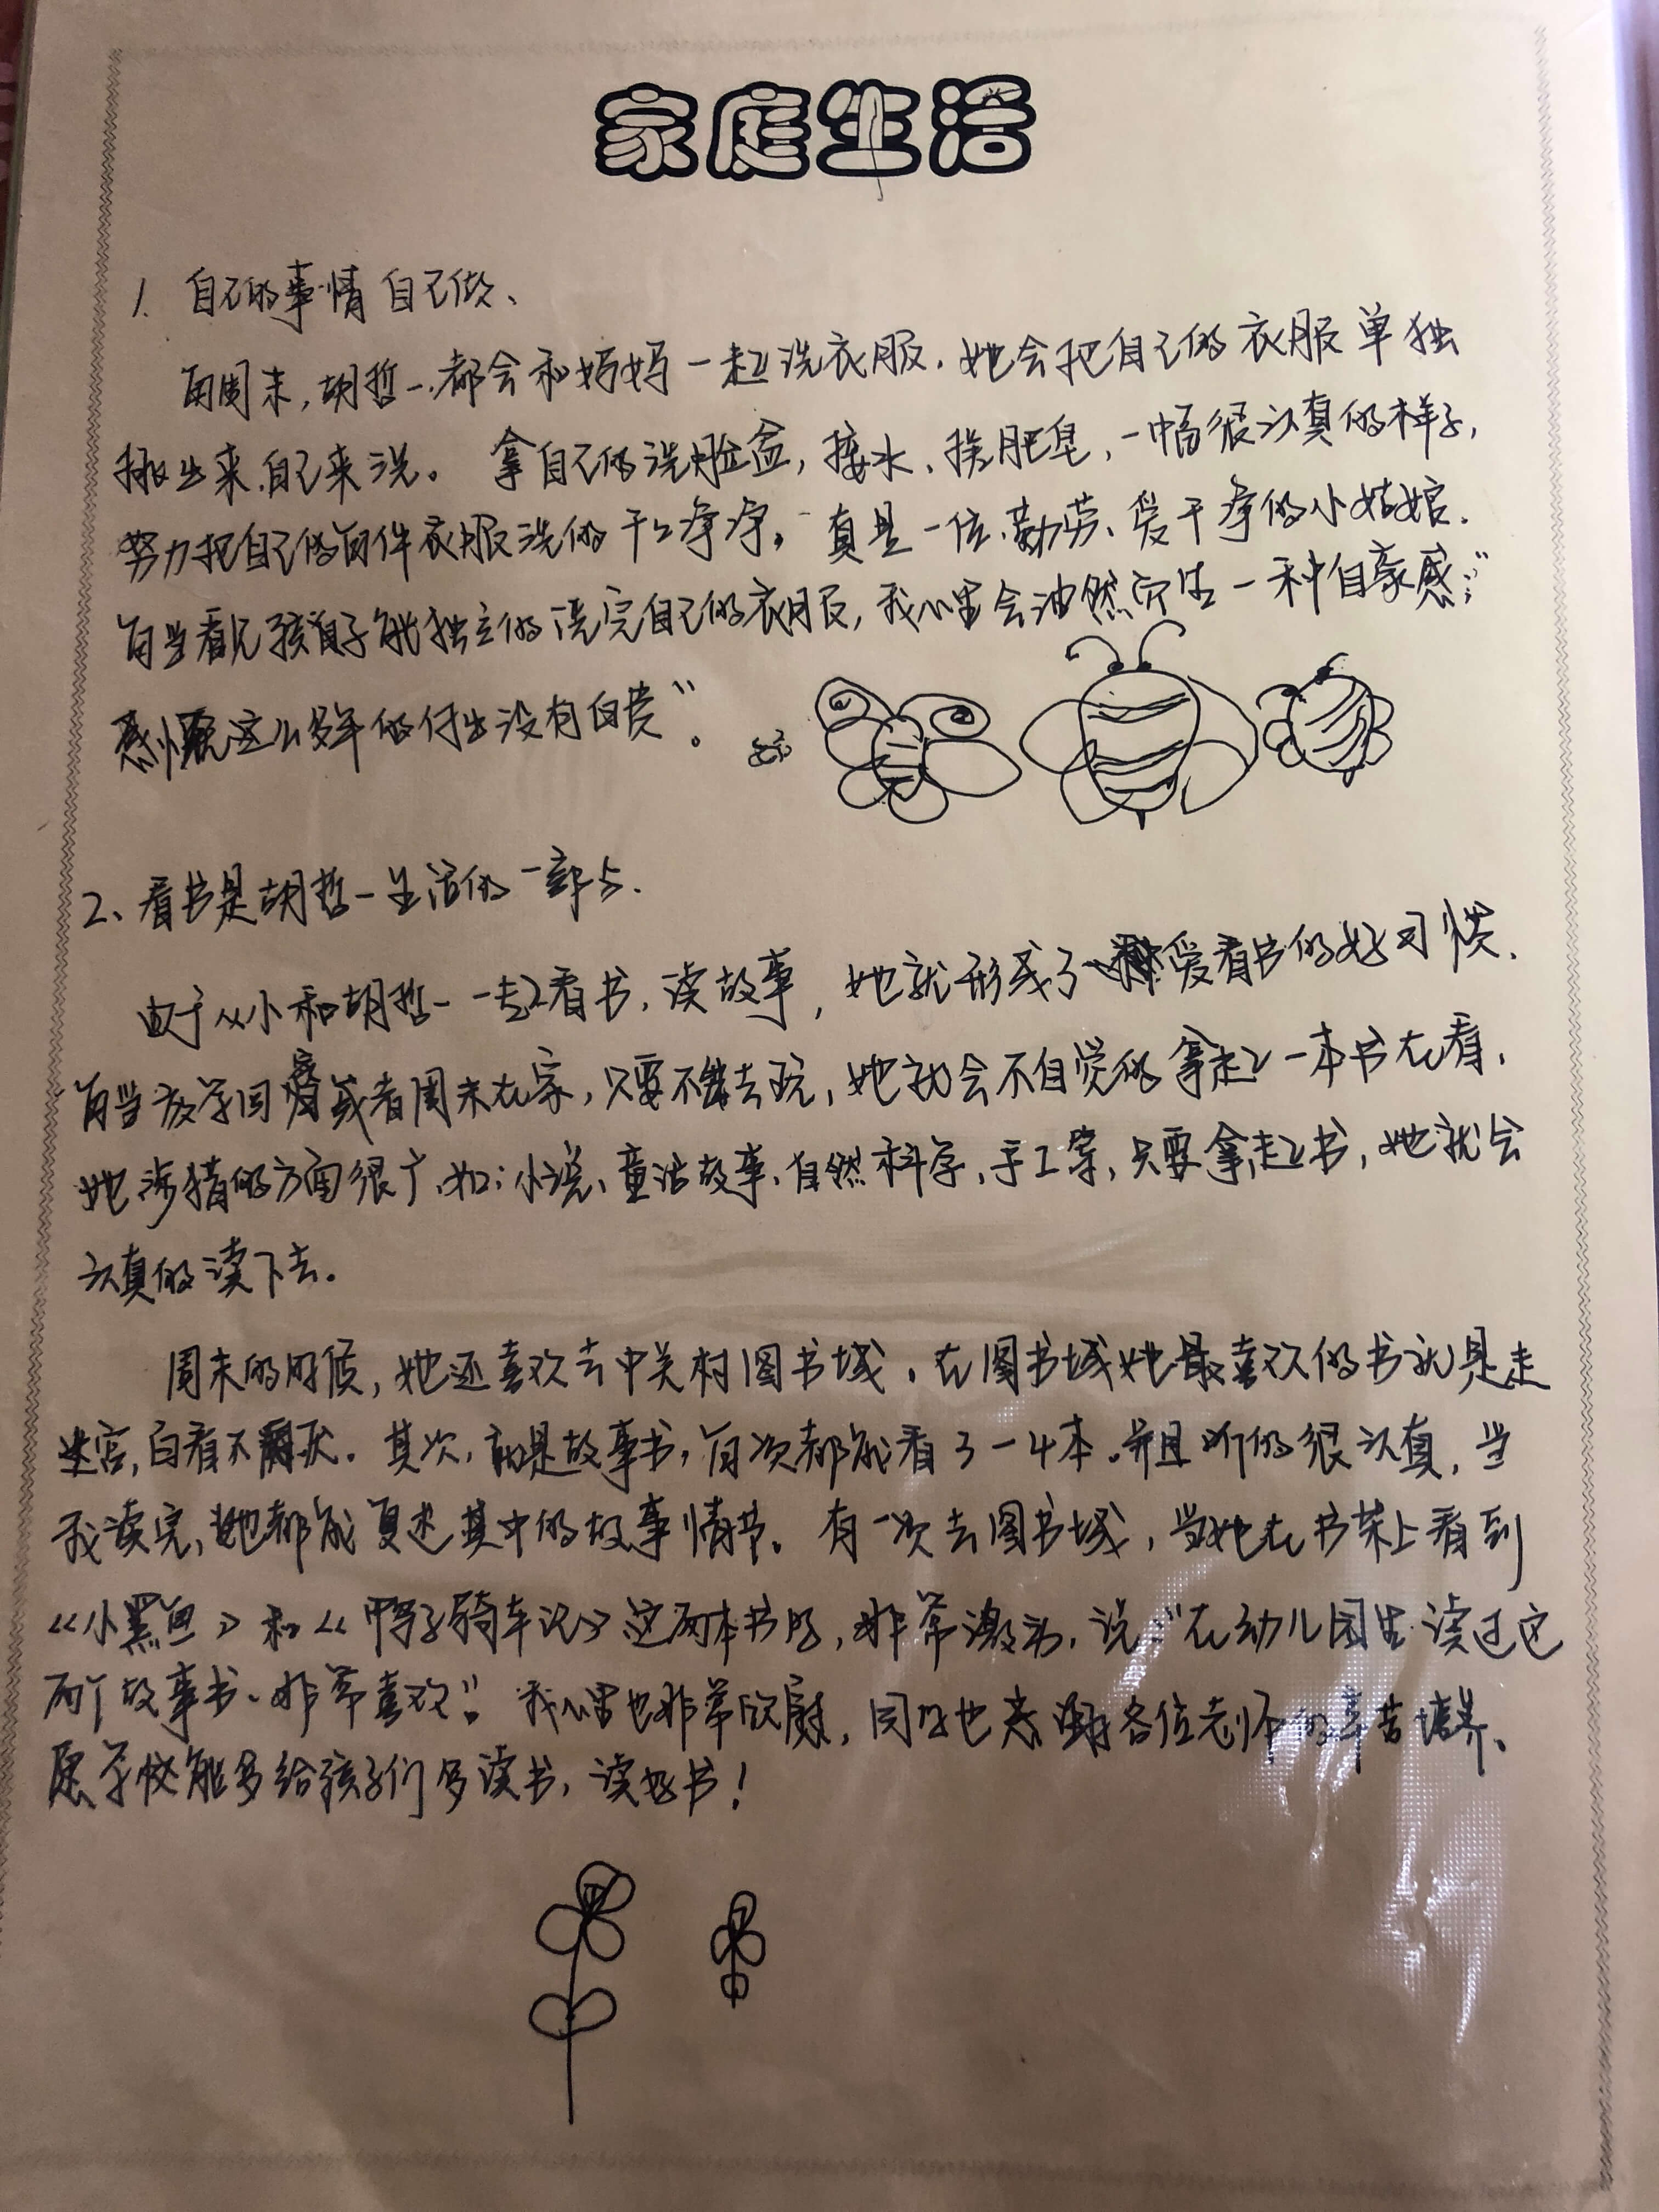 家庭生活
1. 自己的事情自己做、
每周末,胡哲一都会和妈妈一起洗衣服.她会把自己的衣服单独
挑出来.自己来洗。拿自己的洗脸盆,接水、搓肥皂,一幅很认真的样子,
努力把自己的每件衣服洗的干干净净。真是一位勤劳、爱干净的小姑娘.
每当看见孩子能独立的洗完自己的衣服,我心里会油然而生一种自豪感:"
感慨这么多年的付出没有白费"。
2、看书是胡哲一生活的一部分.
由于从小和胡哲一一起看书,读故事,她就形成了爱看书的好习惯.
每当放学回家或者周末在家,只要不出去玩,她就会不自觉的拿起一本书在看,
她涉猎的方面很广.如:小说、童话故事、自然科学,手工等,只要拿起书,她就会
认真的读下去。
周末的时候,她还喜欢去中关村图书城,在图书城她最喜欢的书就是走
迷宫,百看不厌。其次,就是故事书,每次都能看3-4本.并且听的很认真,当
我读完,她都能复述其中的故事情节。有一次去图书城,当她在书架上看到
《小黑鱼》和《鸭子骑车记》这两本书时,非常激动,说:"在幼儿园里读过这
两个故事书、非常喜欢"。我心里也非常欣慰,同时也感谢各位老师的辛苦培养、
愿学校能多给孩子们多读书,读好书!